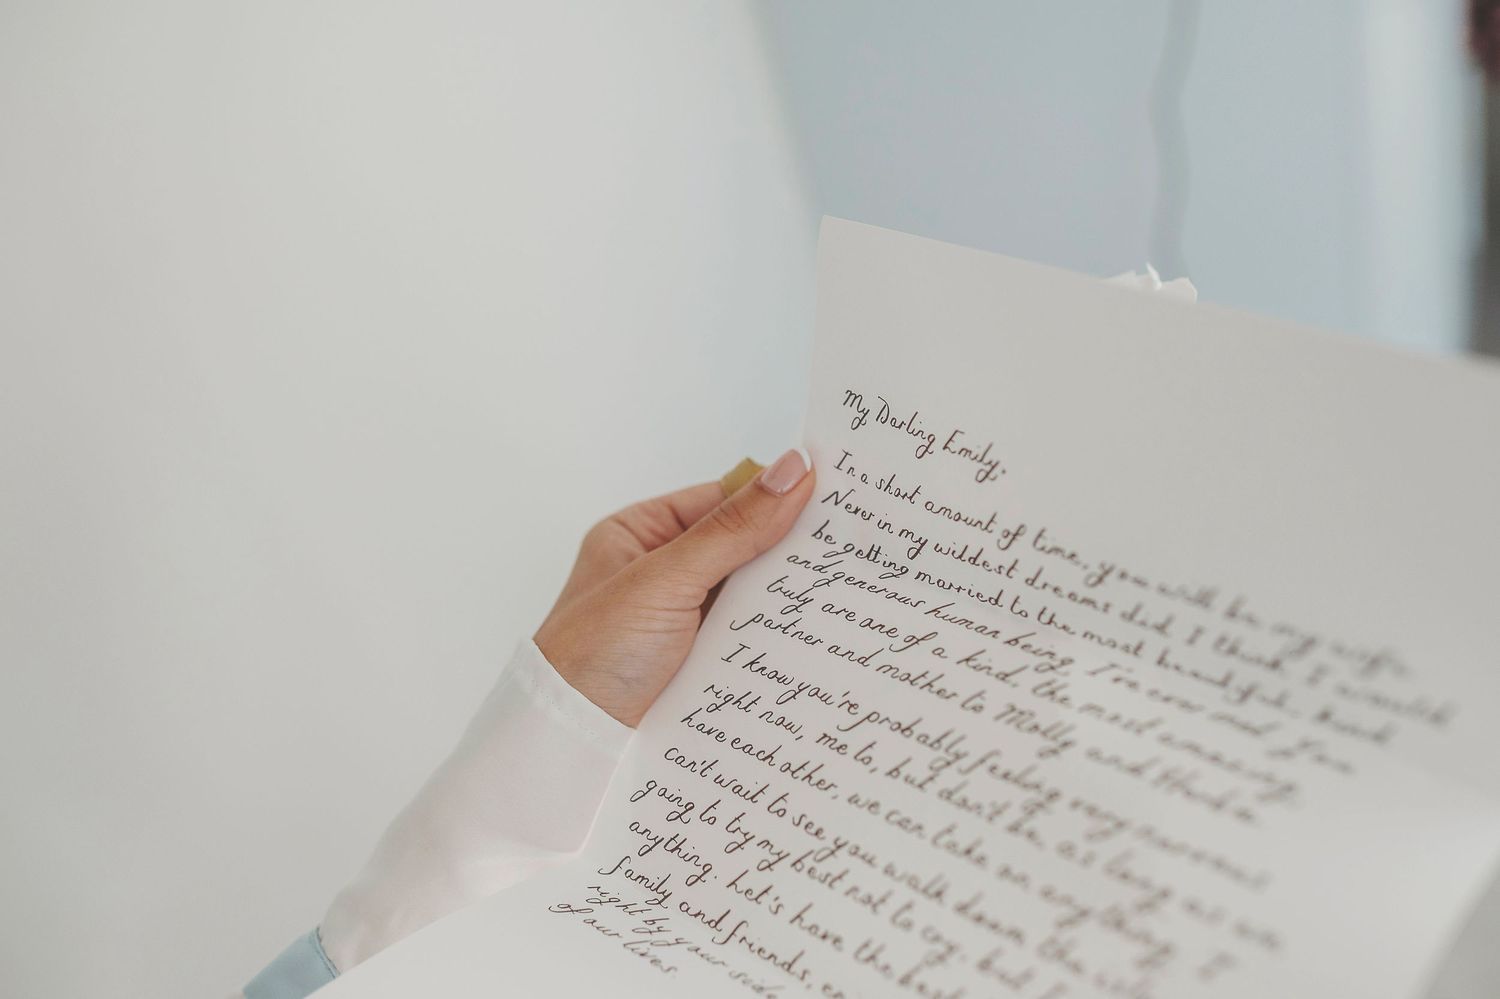 My Darling Emily,
In a short amount of time, you will be my wife.
Never in my wildest dreams did I think I would
be getting married to the most beautiful, kind
and generous human being I've ever met. You
truly are one of a kind, the most amazing
partner and mother to Molly and
I know you're probably feeling very nervous
right now, me to, but don't be, as long as we
have each other, we can take on anything. I
can't wait to see you walk down the
going to try my best not to cry, but
anything. Let's have the best
family and friends,
right by your side
of our lives.